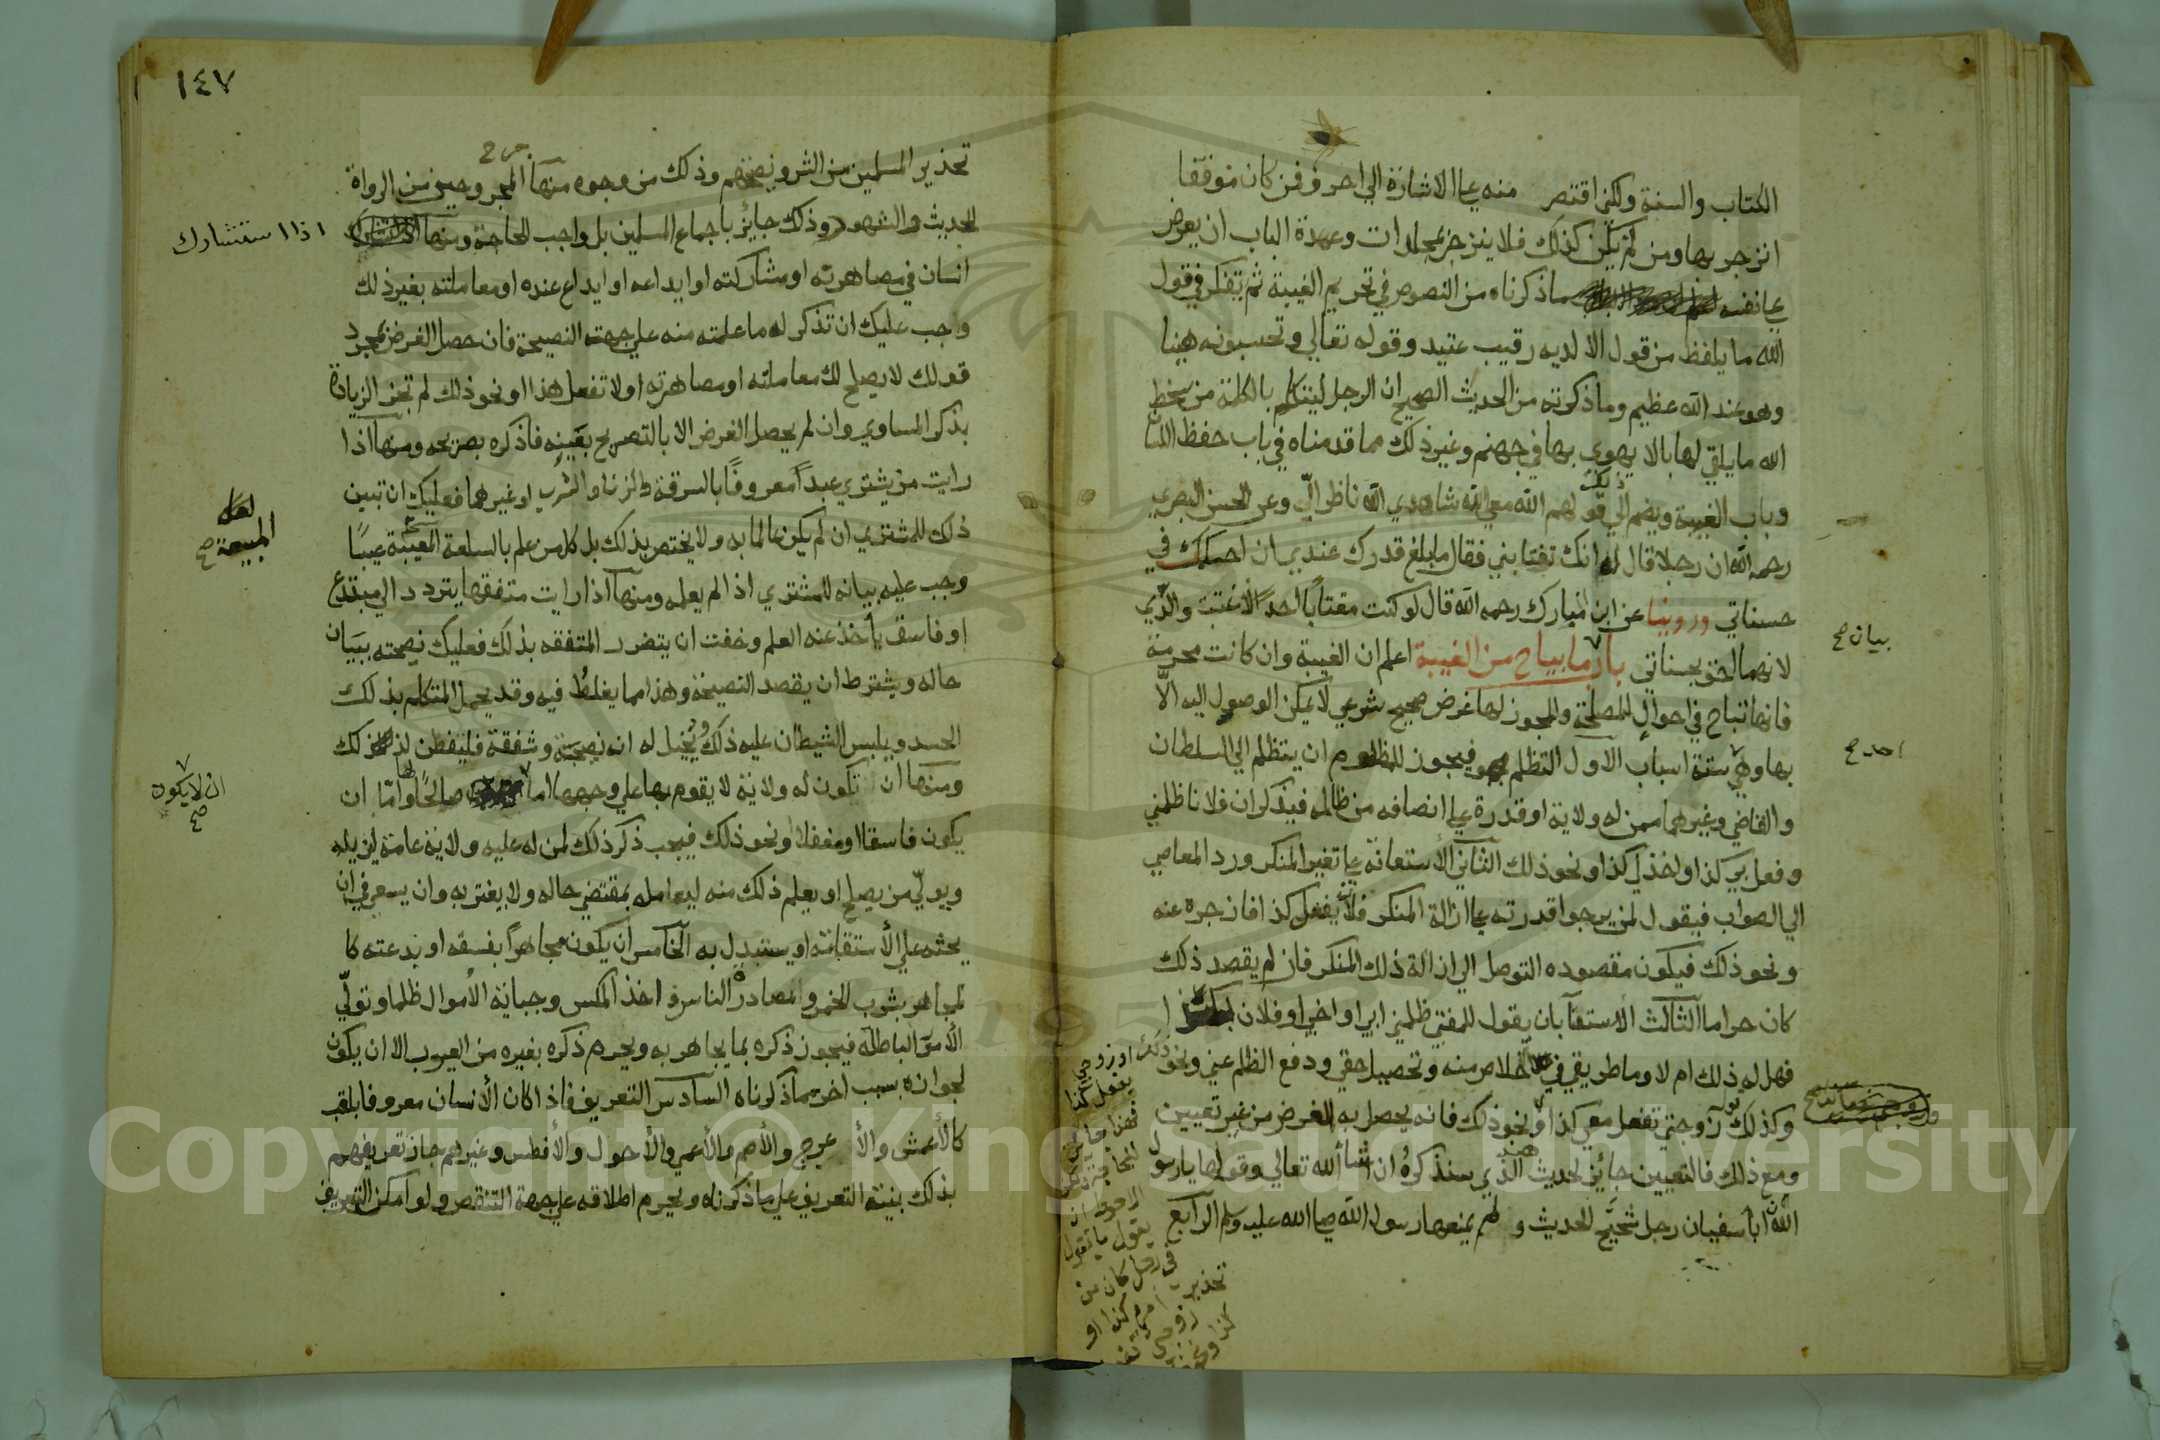 الكتاب والسنة ولكني اقتصر منه على الاشارة الي احرف فمن كان موفقا
انزجر بها ومن لم يكن كذلك فلا ينزجر بمجلدات وعمدة الباب ان يعرض
على نفسه ما ذكرناه من النصوص في تحريم الغيبة ثم يتفكر في قول
الله ما يلفظ من قول الا لديه رقيب عتيد وقوله تعالي وتحسبونه هينا
وهو عند الله عظيم وما ذكرته من الحديث الصحيح ان الرجل ليتكلم بالكلمة من سخط
الله ما يلقي لها بالا يهوي بها في جهنم وغير ذلك مما قدمناه في باب حفظ اللسان
وباب الغيبة ويضم الي ذلك قولهم الله معي الله شاهدي الله ناظر الي وعن الحسن البصري
رحمه الله ان رجلا قال له انك تغتابني فقال ما بلغ قدرك عندي ان احكمك في
حسناتي وروينا عن ابن المبارك رحمه الله قال لو كنت مغتابا احدا لاغتبت والدي
لانهما احق بحسناتي باب ما يباح من الغيبة اعلم ان الغيبة وان كانت محرمة
فانها تباح في احوال للمصلحة والمجوز لها غرض صحيح شرعي لا يمكن الوصول اليه الا
بها وهي ستة اسباب الاول التظلم فيجوز للمظلوم ان يتظلم الي السلطان
والقاضي وغيرهما ممن له ولاية او قدرة على انصافه من ظالمه فيذكر ان فلانا ظلمني
وفعل بي كذا واخذ لي كذا ونحو ذلك الثاني الاستعانة على تغيير المنكر ورد المعاصي
الي الصواب فيقول لمن يرجوا قدرته على ازالة المنكر فلان يفعل كذا فازجره عنه
ونحو ذلك فيكون مقصوده التوصل الي ازالة ذلك المنكر فان لم يقصد ذلك
كان حراما الثالث الاستفتا بان يقول للمفتي ظلمني ابي او اخي او فلان بكذا
فهل له ذلك ام لا وما طريقي في الخلاص منه وتحصيل حقي ودفع الظلم عني ونحو ذلك
وكذلك زوجتي تفعل معي كذا ونحو ذلك فانه يحصل به الغرض من غير تعيين
ومع ذلك فالتعيين جائز لحديث هند الذي سنذكره ان شا الله تعالي وقولها يا رسول
الله ان ابا سفيان رجل شحيح الحديث ولم يمنعها رسول الله صلى الله عليه وسلم الرابع
بيان صح
احد صح
او زوجي
يفعل كذا
يقول ما تقول
في رجل كان من
١٤٧
تحذير المسلمين من الشر ونصحهم وذلك من وجوه منها المجروحين من الرواة
للحديث والشهود وذلك جائز باجماع المسلمين بل واجب للحاجة ومنها
اذا استشارك
انسان في مصاهرته او مشاركته او ايداعه او ايداع عنده او معاملته بغير ذلك
واجب عليك ان تذكر له ما علمته منه على جهة النصيحة فان حصل الغرض بمجرد
قولك لا يصلح لك معاملته او مصاهرته او لا تفعل هذا او نحو ذلك لم تجز الزيادة
بذكر المساوي وان لم يحصل الغرض الا بالتصريح بعينه فاذكره بصريحه ومنها اذا
رايت من يشتري عبدا معروفا بالسرقة والزنا والشرب او غيرهما فعليك ان تبين
ذلك للمشتري ان لم يكن عالما به ولا يختص بذلك بل كل من علم بالسلعة المعيبة عيبا
لعله
المبيعة صح
وجب عليه بيانه للمشتري اذا لم يعلمه ومنها اذا رايت متفقها يتردد الي مبتدع
او فاسق يأخذ عنه العلم وخفت ان يتضرر المتفقه بذلك فعليك نصيحته ببيان
حاله ويشترط ان يقصد النصيحة وهذا مما يغلط فيه وقد يحمل المتكلم بذلك
الحسد ويلبس الشيطان عليه ذلك ويخيل له انه نصيحة وشفقة فليتفطن لذلك
ومنها ان تكون له ولاية لا يقوم بها علي وجهها اما صالحا لها واما ان
ان لا يكون
صح
يكون فاسقا او مغفلا ونحو ذلك فيجب ذكر ذلك لمن له عليه ولاية عامة ليزيله
ويولي من يصلح او يعلم ذلك منه ليعامله بمقتضي حاله ولا يغتر به وان يسعي في ان
يحثه علي الاستقامة او يستبدل به الخامس ان يكون مجاهرا بفسقه او بدعته كا
لمجاهر بشرب الخمر ومصادرة الناس واخذ المكس وجباية الاموال ظلما وتولي
الامور الباطلة فيجوز ذكره بما يجاهر به ويحرم ذكره بغيره من العيوب الا ان يكون
لجوازه سبب اخر مما ذكرناه السادس التعريف فاذا كان الانسان معروفا بلقب
كالاعمش والاعرج والاصم والاعمي والاحول والافطس وغيرهم جاز تعريفهم
بذلك بنية التعريف علي ما ذكرناه ويحرم اطلاقه على جهة التنقص ولو امكن التعريف
Copyright © King Saud University